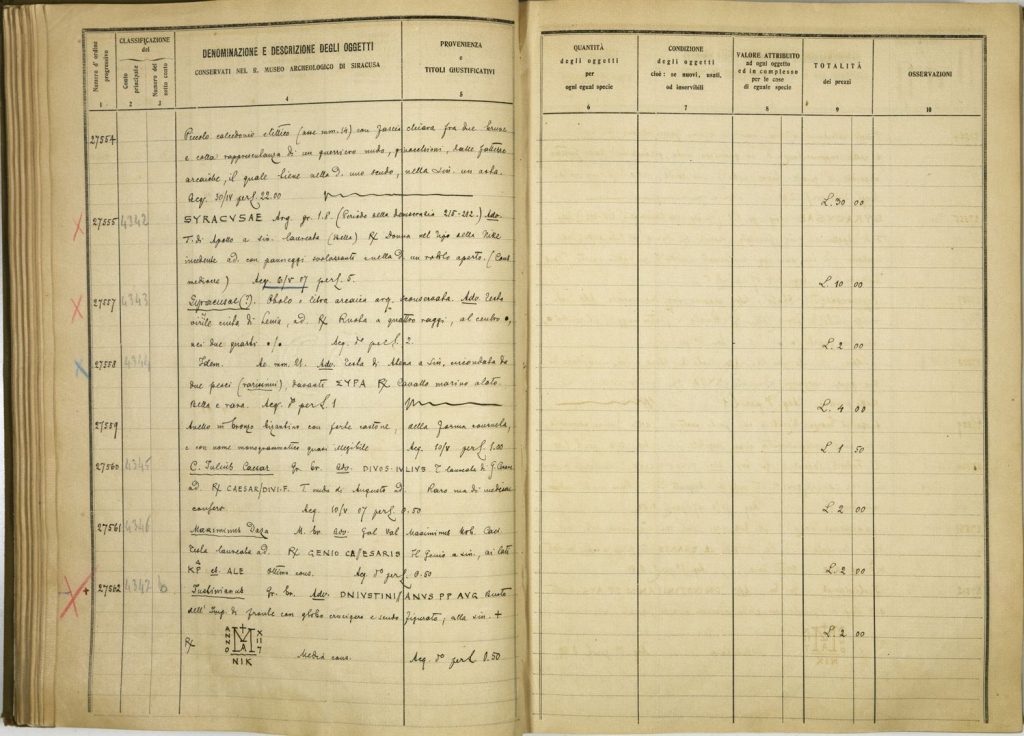 Numero d'ordine progressivo
CLASSIFICAZIONE del
Costo principale
Numero del sotto costo
DENOMINAZIONE E DESCRIZIONE DEGLI OGGETTI
CONSERVATI NEL R. MUSEO ARCHEOLOGICO DI SIRACUSA
PROVENIENZA
e
TITOLI GIUSTIFICATIVI
QUANTITÀ
degli oggetti
per
ogni egual specie
CONDIZIONE
degli oggetti
cioè: se nuovi, usati,
od inservibili
VALORE ATTRIBUITO
ad ogni oggetto
ed in complesso
per le cose
di eguale specie
TOTALITÀ
dei prezzi
OSSERVAZIONI
1 2 3 4 5 6 7 8 9 10
27554 Piccolo calcedonio ellittico (asse mm. 14) con fascia chiara fra due brune
e colla rappresentanza di un guerriero nudo, ginocchioni, dalle fattezze
arcaiche, il quale tiene nella d. uno scudo, nella sin. un asta.
Acq. 30/IV per £. 22.00 L. 30 00
27555 4342 SYRACVSAE Arg. gr. 1.8. (Periodo della democrazia 215-212.) Adv.
T. di Apollo a sin. laureata (bella) R/ Donna nel tipo della Nike
incedente a d. con panneggi svolazzanti e nella d. un rotolo aperto. (Cons.
mediocre) Acq. 6/V 07 per £. 5. L. 10 00
27557 4343 Syracusae (?). Obolo o litra arcaica arg. sconservata. Adv. Testa
virile cinta di tenia, a d. R/ Ruota a quattro raggi, al centro
nei due quarti Acq. do per £. 2. L. 2 00
27558 4344 Idem. Ae mm. 21. Adv. Testa di Atena a sin. circondata da
due pesci (rarissimi) davanti ΣΥΡΑ R/ Cavallo marino alato.
Bella e rara. Acq. do per £. 1 L. 4 00
27559 Anello in bronzo bizantino con forte castone, della forma consueta,
e con nome monogrammatico quasi illegibile Acq. 10/V per £. 1.00 L. 1 50
27560 4345 C. Iulius Caesar Gr. br. adv. DIVOS·IVLIVS T. laureata di G. Cesare
a d. R/ CAESAR/DIVI·F. T. nuda di Augusto a d. Raro ma di mediocre
conserv. Acq. 10/V 07 per £. 0.50 L. 2 00
27561 4346 Maximinus Daza M. br. adv. Gal Val Maximinus Nob. Caes.
Testa laureata a d. R/ GENIO CAESARIS Il Genio a sin., ai lati
KP A et. ALE Ottima cons. Acq. do per £. 0.50 L. 2 00
+ 27562 4347 b Iustinianus Gr. br. Adv. DNIVSTINIANVS·PP AVG Busto
dell' Imp. di fronte con globo crucigero e scudo figurato, alla sin. +
R/ ANNO M A XIII NIK Media cons. Acq. do per £. 0.50 L. 2 00